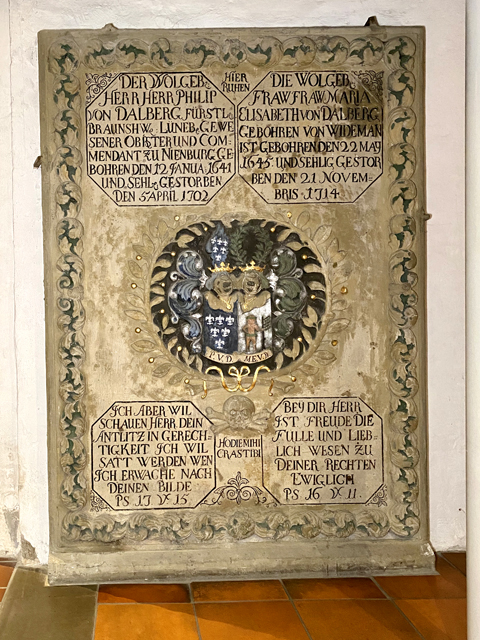 HIER
RUHEN
DER WOLGEB
HERR HERR PHILIP
VON DALBERG FÜRSTL
BRAUNSHW: LUNEB: GEWE
SENER OBRSTER UND COM
MENDANT ZU NIENBURG GE
BOHREN DEN 12 JANUA 1641
UND SEHL: GESTORBEN
DEN 5 APRIL 1702
DIE WOLGEB
FRAW FRAW MARIA
ELISABETH VON DALBERG
GEBOHREN VON WIDEMAN
IST GEBOHREN DEN 22 MAY
1645 UND SEHLIG GESTOR
BEN DEN 21 NOVEM
BRIS 1714
P.V.D M.E.V.D
ICH ABER WIL
SCHAUEN HERR DEIN
ANTLITZ IN GERECH
TIGKEIT ICH WIL
SATT WERDEN WEN
ICH ERWACHE NACH
DEINEN BILDE
PS 17 V 15
HODIE MIHI
CRAS TIBI
BEY DIR HERR
IST FREUDE DIE
FULLE UND LIEB
LICH WESEN ZU
DEINER RECHTEN
EWIGLICH
PS 16 V 11